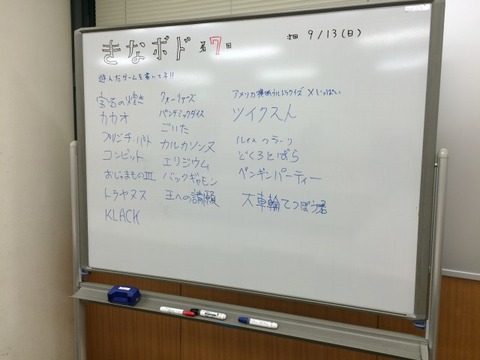 きなボド 第7回
次回 9/13(日)
遊んだゲームを書いてネ!!
宝石の煌き
カカオ
フレンチ
コンビット
おじゃまもの
トラヤヌス
KLACK
クォーリアーズ
パンデミックダイス
ごいた
カルカソンヌ
エリジウム
バックギャモン
王への請願
アメリカ横断ウルトラクイズ ×いっぱい
ツイクスト
ルイス
どくろとばら
ペンギンパーティー
大車輪てつぼう君